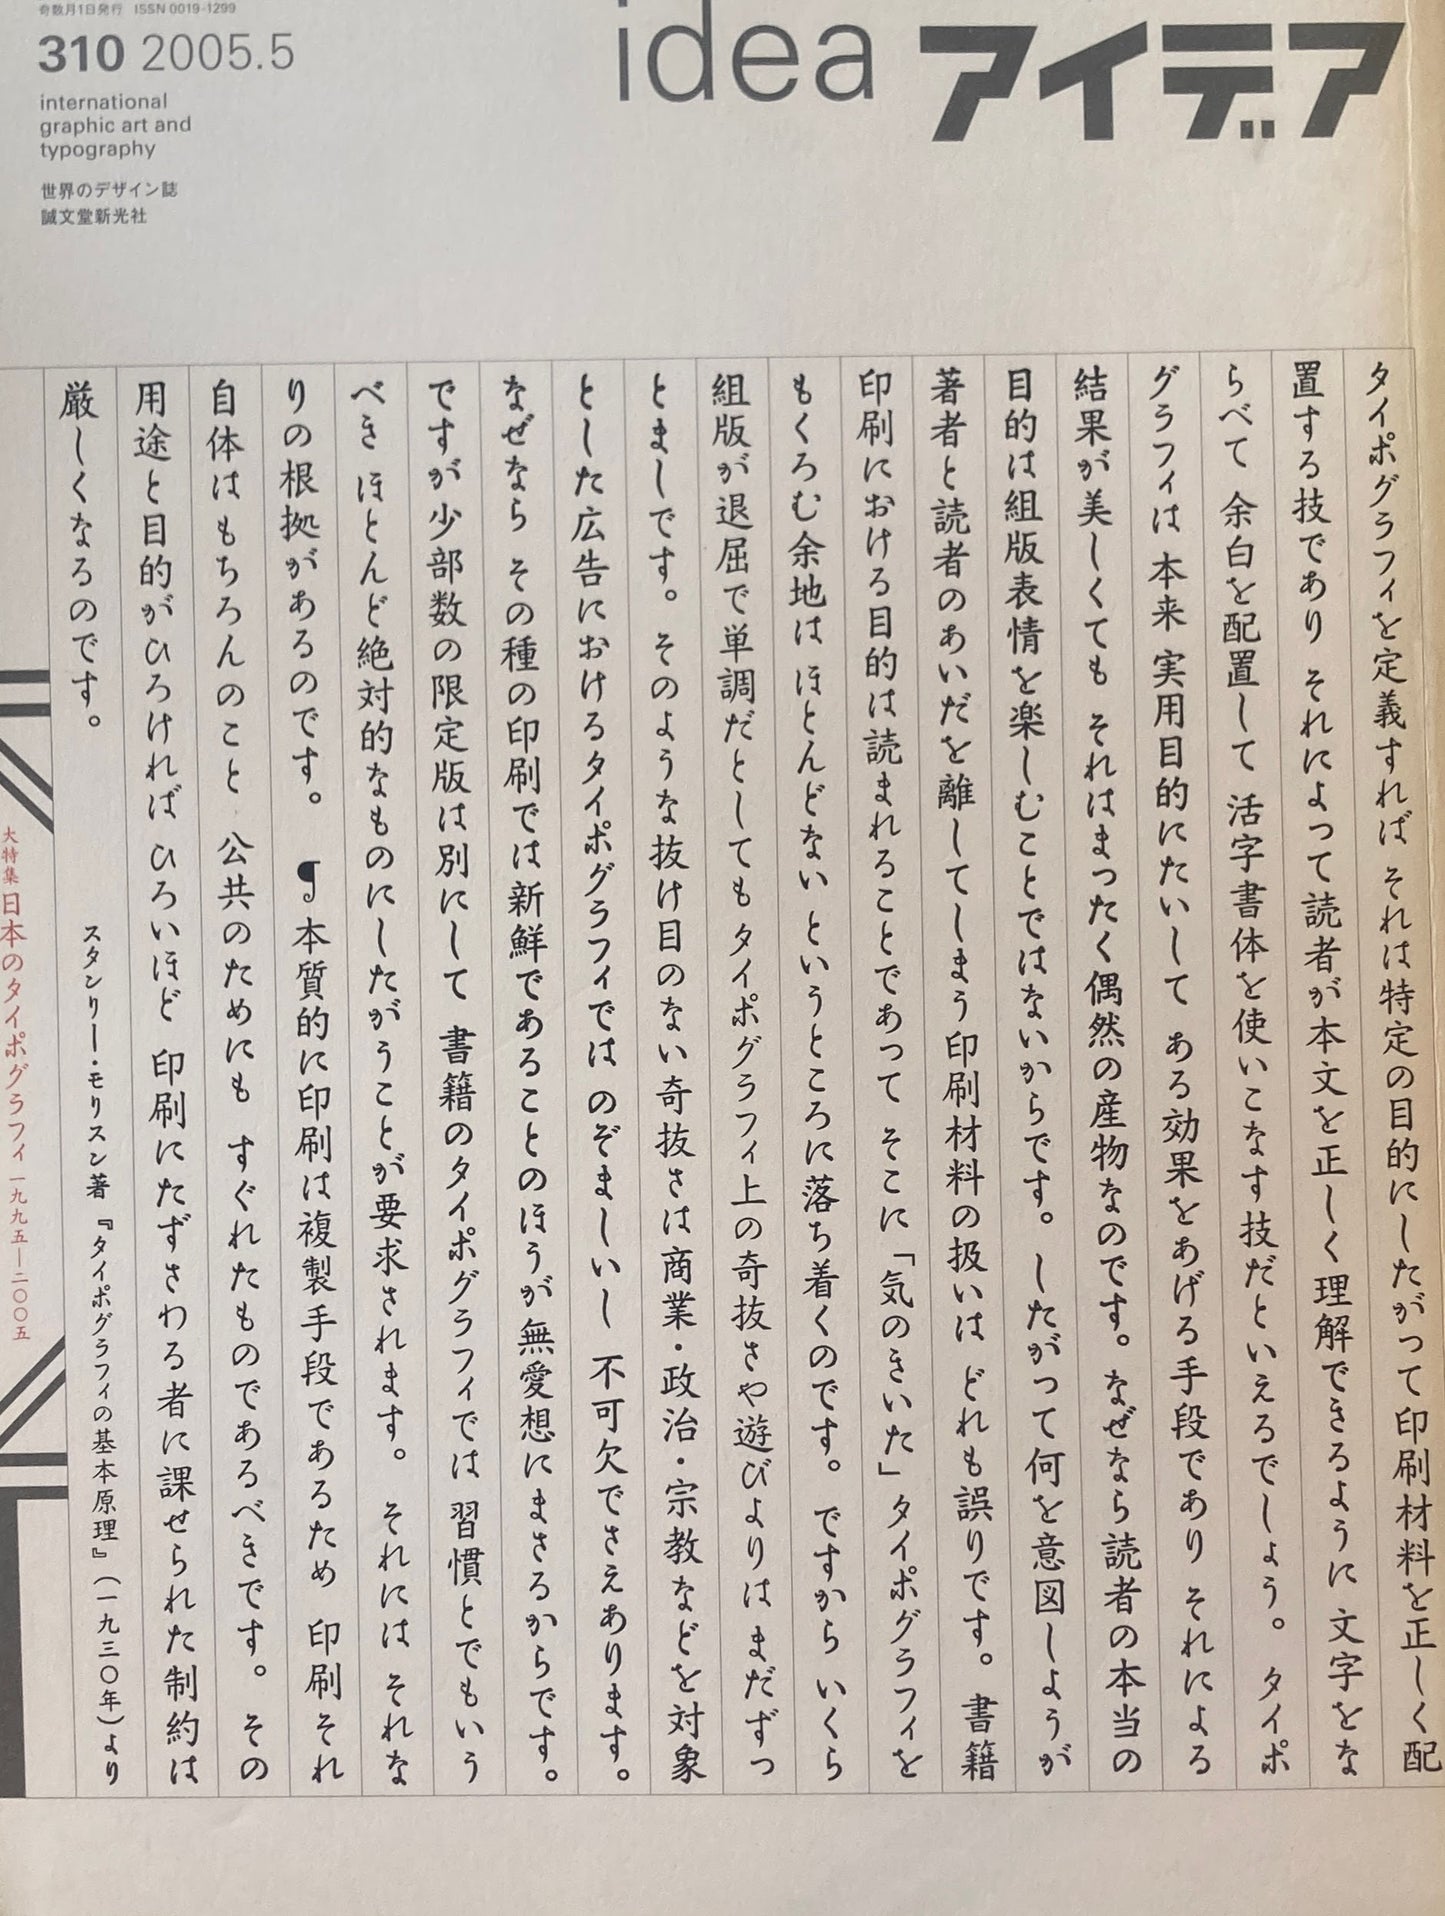 奇数月1日発行 ISSN 0019-1299
310 2005.5
international
graphic art and
typography
世界のデザイン誌
誠文堂新光社
idea アイデア
タイポグラフィを定義すれば それは特定の目的にしたがって印刷材料を正しく配
置する技であり それによって読者が本文を正しく理解できるように 文字をな
らべて 余白を配置して 活字書体を使いこなす技だといえるでしょう。 タイポ
グラフィは 本来 実用目的にたいして ある効果をあげる手段であり それによる
結果が美しくても それはまったく偶然の産物なのです。なぜなら読者の本当の
目的は組版表情を楽しむことではないからです。したがって何を意図しようが
著者と読者のあいだを離してしまう印刷材料の扱いは どれも誤りです。書籍
印刷における目的は読まれることであって そこに「気のきいた」タイポグラフィを
もくろむ余地は ほとんどない というところに落ち着くのです。ですから いくら
組版が退屈で単調だとしても タイポグラフィ上の奇抜さや遊びよりは まだずっ
とましです。そのような抜け目のない奇抜さは商業・政治・宗教などを対象
とした広告におけるタイポグラフィでは のぞましいし 不可欠でさえあります。
なぜなら その種の印刷では新鮮であることのほうが無愛想にまさるからです。
ですが少部数の限定版は別にして 書籍のタイポグラフィでは 習慣とでもいう
べき ほとんど絶対的なものにしたがうことが要求されます。 それには それな
りの根拠があるのです。 ¶本質的に印刷は複製手段であるため 印刷 それ
自体は もちろんのこと 公共のためにも すぐれたものであるべきです。その
用途と目的がひろければ ひろいほど 印刷にたずさわる者に課せられた制約は
厳しくなるのです。
スタンリー・モリスン著『タイポグラフィの基本原理』(一九三〇年)より
大特集 日本のタイポグラフィ 一九九五―二〇〇五